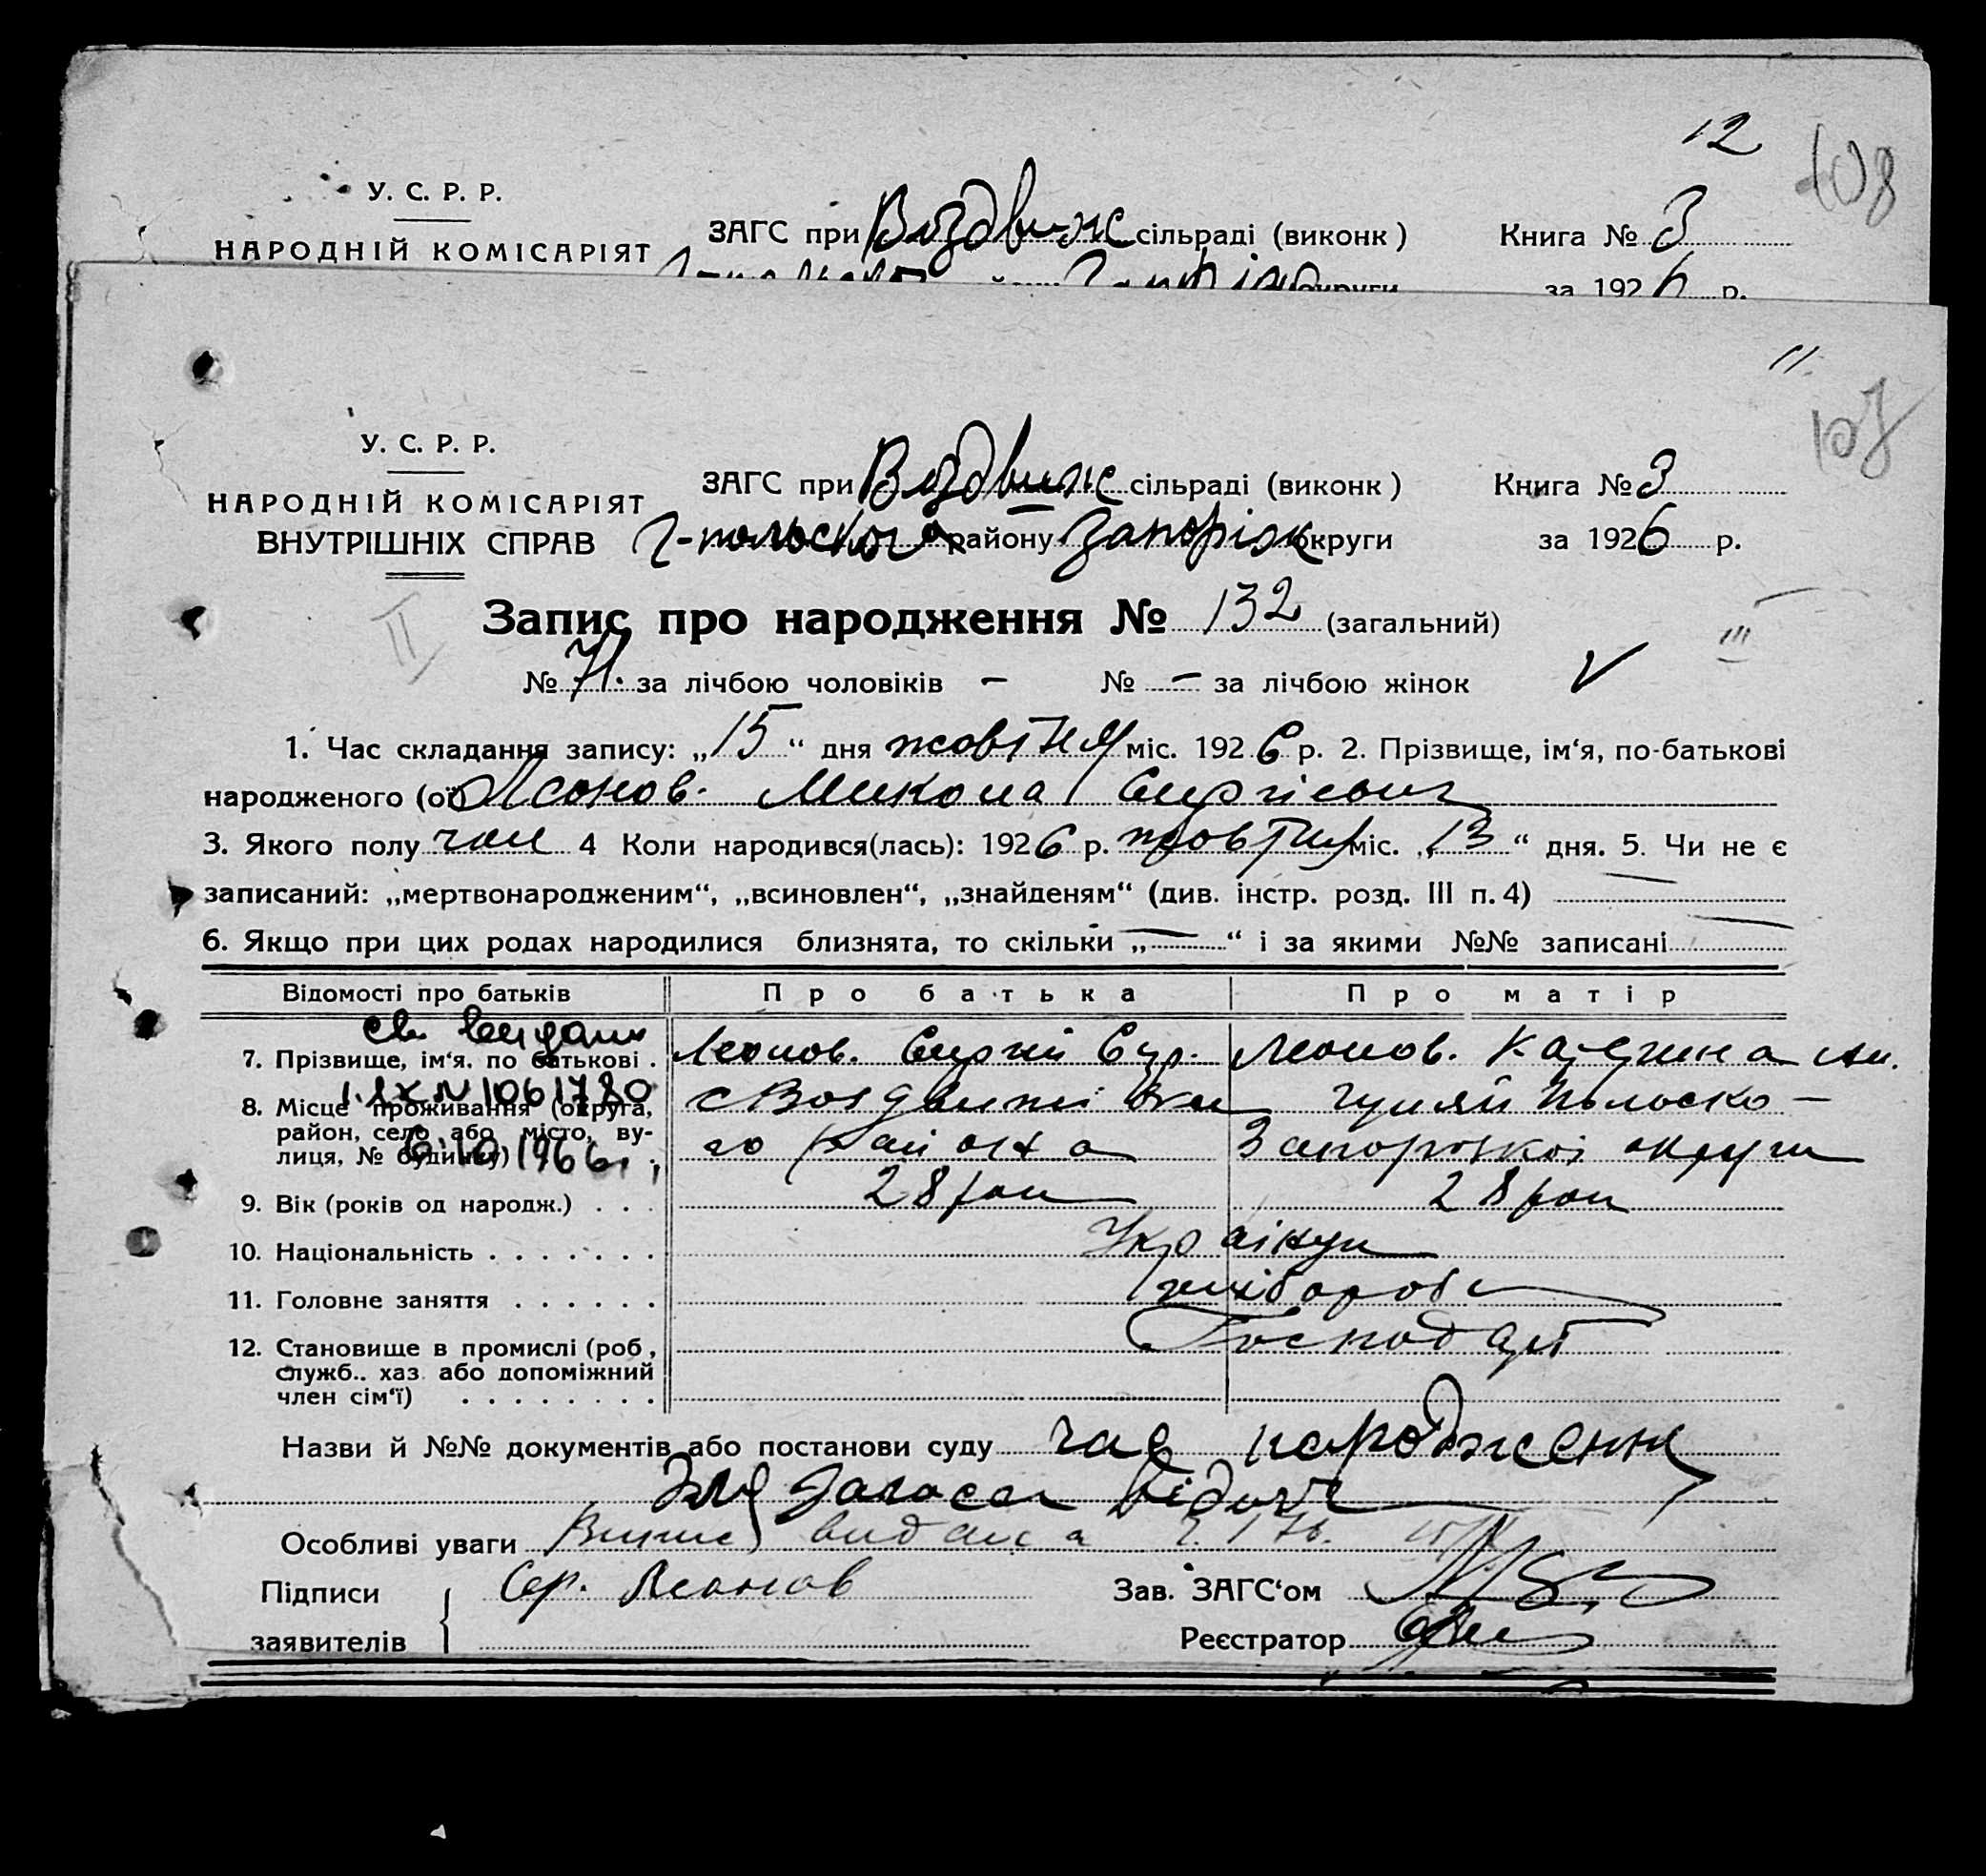 12
108
У. С. Р. Р.
НАРОДНІЙ КОМІСАРІЯТ
ЗАГС при Воздвиж сільраді (виконк)
Книга № 3
округи
за 1926 р.
11
107
У. С. Р. Р.
НАРОДНІЙ КОМІСАРІЯТ
ВНУТРІШНІХ СПРАВ
ЗАГС при Воздвиж сільраді (виконк)
Книга № 3
Г-польського району Запоріж округи
за 1926 р.
II
III
Запис про народження № 132 (загальний)
№ 71. за лічбою чоловіків – № – за лічбою жінок
1. Час складання запису: „15“ дня жовтня міс. 1926 р. 2. Прізвище, ім‘я, по-батькові
народженого (ої) Леонов. Микола Сергієвич
3. Якого полу чол 4 Коли народився(лась): 1926 р. жовтня міс. „13“ дня. 5. Чи не є
записаний: „мертвонародженим“, „всиновлен“, „знайденям“ (див. інстр. розд. III п. 4)
6. Якщо при цих родах народилися близнята, то скільки „—“ і за якими №№ записані
Відомості про батьків
Про батька
Про матір
7. Прізвище, ім‘я. по батькові .
Леонов. Сергій Сер.
Леонов. Катерина
N 1061780
8. Місце проживання (округа,
район, село або місто, ву-
лиця, № будинку)
6.10.1966
с Воздвижівки
Гуляй Польско-
го района
Запорожкої округи
9. Вік (років од народж.) . . .
28 рок
28 рок
10. Національність . . . . . . .
Українци
11. Головне заняття . . . . . .
хлібороби
12. Становище в промислі (роб,
служб.. хаз. або допоміжний
член сім‘ї) . . . . . . . .
Господарі
Назви й №№ документів або постанови суду час народження
Для загса
Особливі уваги Випис видана
Підписи
заявителів
Сер. Леонов
Зав. ЗАГС‘ом
Реєстратор